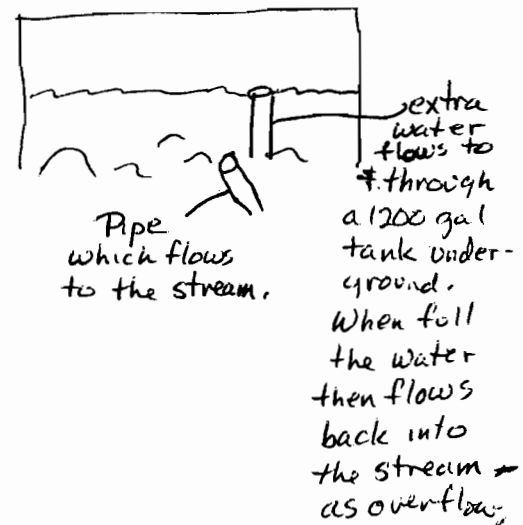 Pipe
which flows
to the stream.
extra
water
flows to
& through
a 1200 gal
tank under-
ground.
When full
the water
then flows
back into
the stream -
as overflow.